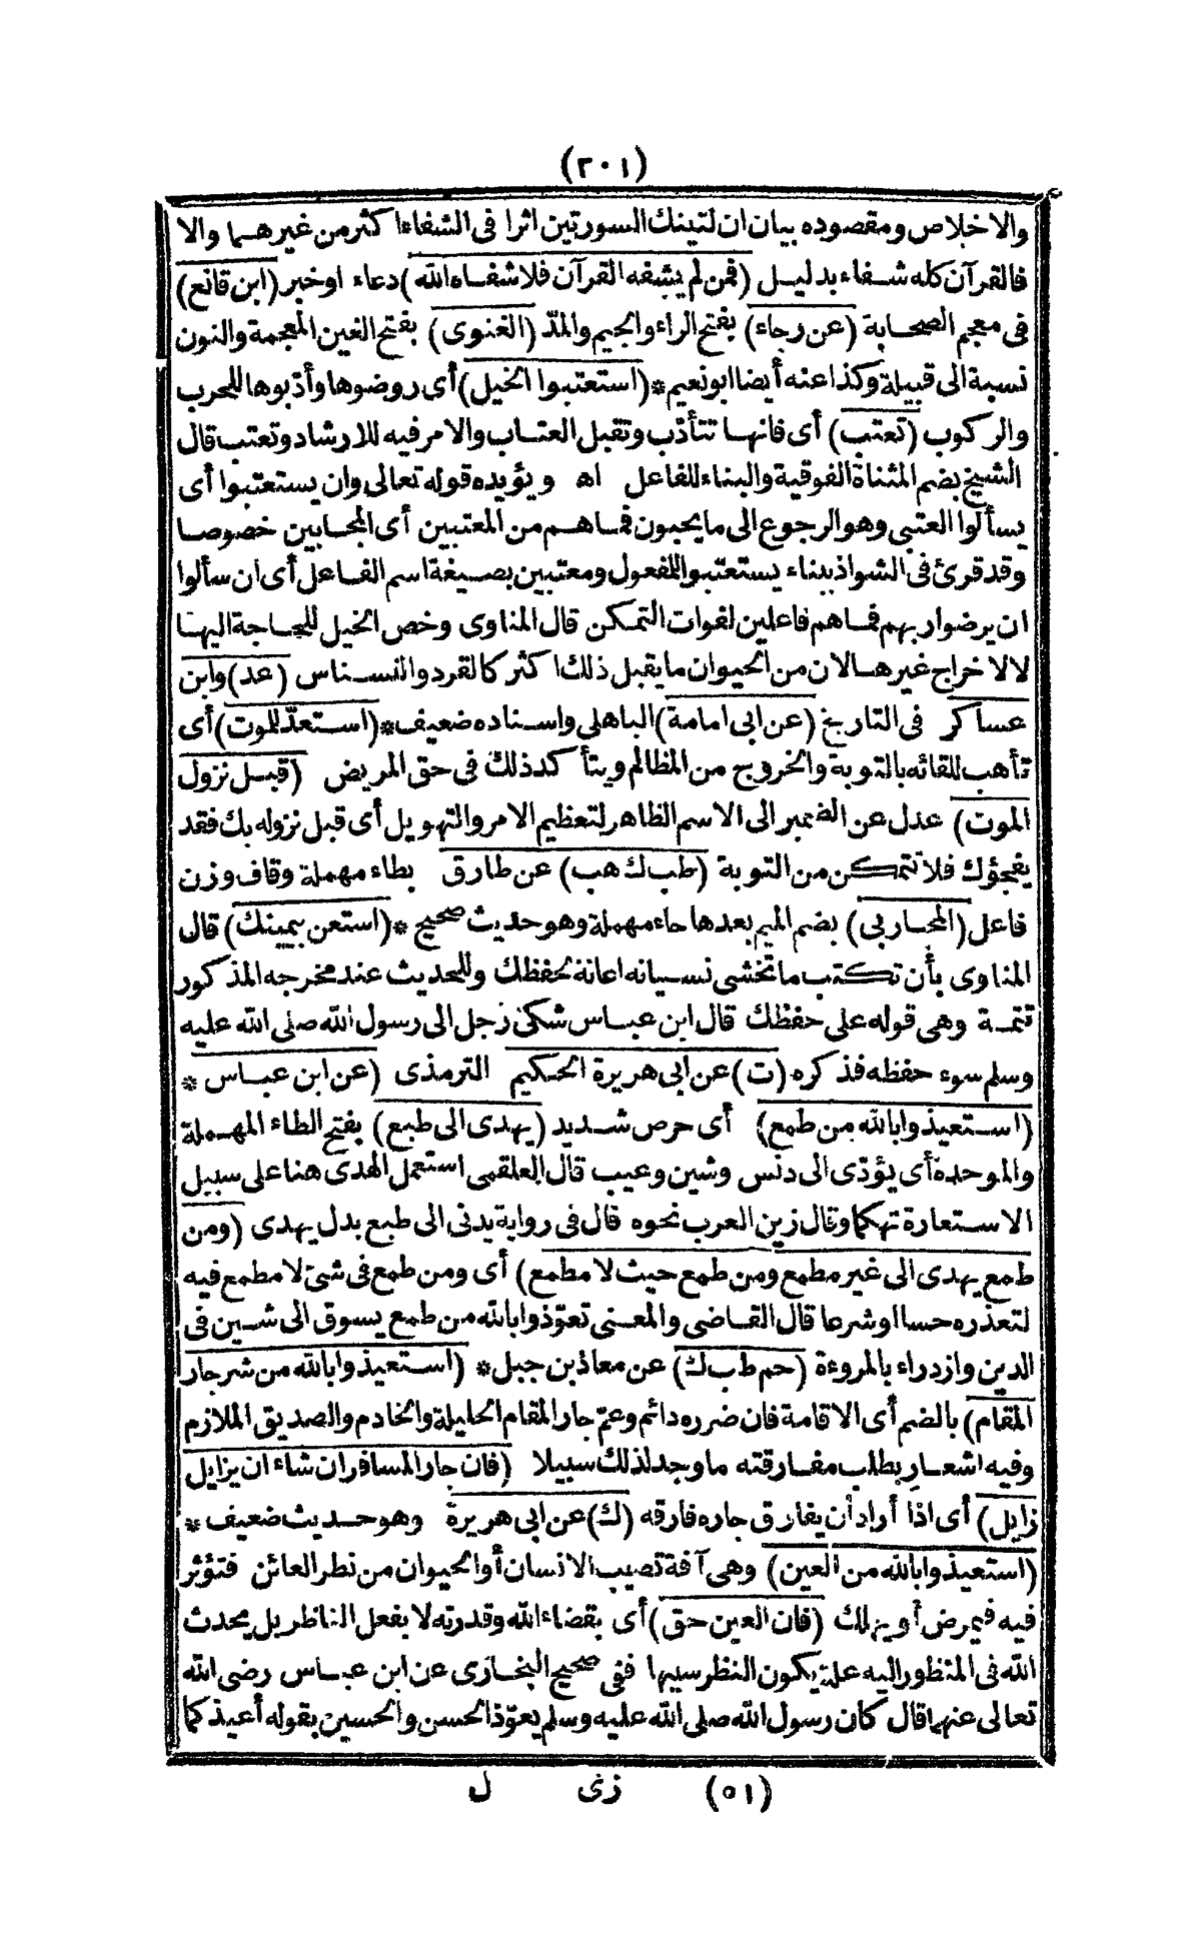 (٢٠١)
والاخلاص ومقصوده بيان ان لتينك السورتين اثرا فى الشفاء اكثر من غيرهما والا
فالقرآن كله شفاء بدليل (فمن لم يشفه القرآن فلا شفاه الله) دعاء او خبر (ابن قانع)
فى معجم الصحابة (عن رجاء) بفتح الراء والجيم والمدّ (الغنوى) بفتح الغين المعجمة والنون
نسبة الى قبيلة وكذا عنه أيضا ابو نعيم * (استعتبوا الخيل) أى روضوها وأدّبوها للحرب
والركوب (تعتب) أى فانها تتأدّب وتقبل العتاب والامر فيه للارشاد وتعتب قال
الشيخ بضم المثناة الفوقية والبناء للفاعل اه ويؤيده قوله تعالى وان يستعتبوا أى
يسألوا العتبى وهو الرجوع الى ما يحبون فما هم من المعتبين أى المجابين خصوصا
وقد قرئ فى الشواذ ببناء يستعتبوا للمفعول ومعتبين بصيغة اسم الفاعل أى ان سألوا
ان يرضوا ربهم فما هم فاعلين لفوات التمكن قال المناوى وخص الخيل للحاجة اليها
لا لاخراج غيرها لان من الحيوان ما يقبل ذلك اكثر كالقرد والنسناس (عد) وابن
عساكر فى التاريخ (عن ابى امامة) الباهلى واسناده ضعيف * (استعدّ للموت) أى
تأهب للقائه بالتوبة والخروج من المظالم ويتأكد ذلك فى حق المريض (قبل نزول
الموت) عدل عن الضمير الى الاسم الظاهر لتعظيم الامر والتهويل أى قبل نزوله بك فقد
يفجؤك فلا تتمكن من التوبة (طب ك هب) عن طارق بطاء مهملة وقاف وزن
فاعل (المحاربى) بضم الميم بعدها حاء مهملة وهو حديث صحيح * (استعن بيمينك) قال
المناوى بأن تكتب ما تخشى نسيانه اعانة لحفظك وللحديث عند مخرجه المذكور
تتمة وهى قوله على حفظك قال ابن عباس شكى رجل الى رسول الله صلى الله عليه
وسلم سوء حفظه فذكره (ت) عن ابى هريرة الحكيم الترمذى (عن ابن عباس *
(استعيذوا بالله من طمع) أى حرص شديد (يهدى الى طبع) بفتح الطاء المهملة
والموحدة أى يؤدّى الى دنس وشين وعيب قال العلقمى استعمل الهدى هنا على سبيل
الاستعارة تهكما وقال زين العرب نحوه قال فى رواية يدنى الى طبع بدل يهدى (ومن
طمع يهدى الى غير مطمع ومن طمع حيث لا مطمع) أى ومن طمع فى شئ لا مطمع فيه
لتعذره حسا او شرعا قال القاضى والمعنى تعوّذوا بالله من طمع يسوق الى شين فى
الدين وازدراء بالمروءة (حم طب ك) عن معاذ بن جبل * (استعيذوا بالله من شر جار
المقام) بالضم أى الاقامة فان ضرره دائم وعمّ جار المقام الحليلة والخادم والصديق الملازم
وفيه اشعار بطلب مفارقته ما وجد لذلك سبيلا (فان جار المسافر ان شاء ان يزايل
زايل) أى اذا أراد أن يفارق جاره فارقه (ك) عن ابى هريرة وهو حديث ضعيف *
(استعيذوا بالله من العين) وهى آفة تصيب الانسان أو الحيوان من نظر العائن فتؤثر
فيه فيمرض أو يهلك (فان العين حق) أى بقضاء الله وقدرته لا بفعل الناظر بل يحدث
الله فى المنظور اليه علة يكون النظر سببها ففى صحيح البخارى عن ابن عباس رضى الله
تعالى عنهما قال كان رسول الله صلى الله عليه وسلم يعوّذ الحسن والحسين بقوله أعيذكما
(٥١) زى ل